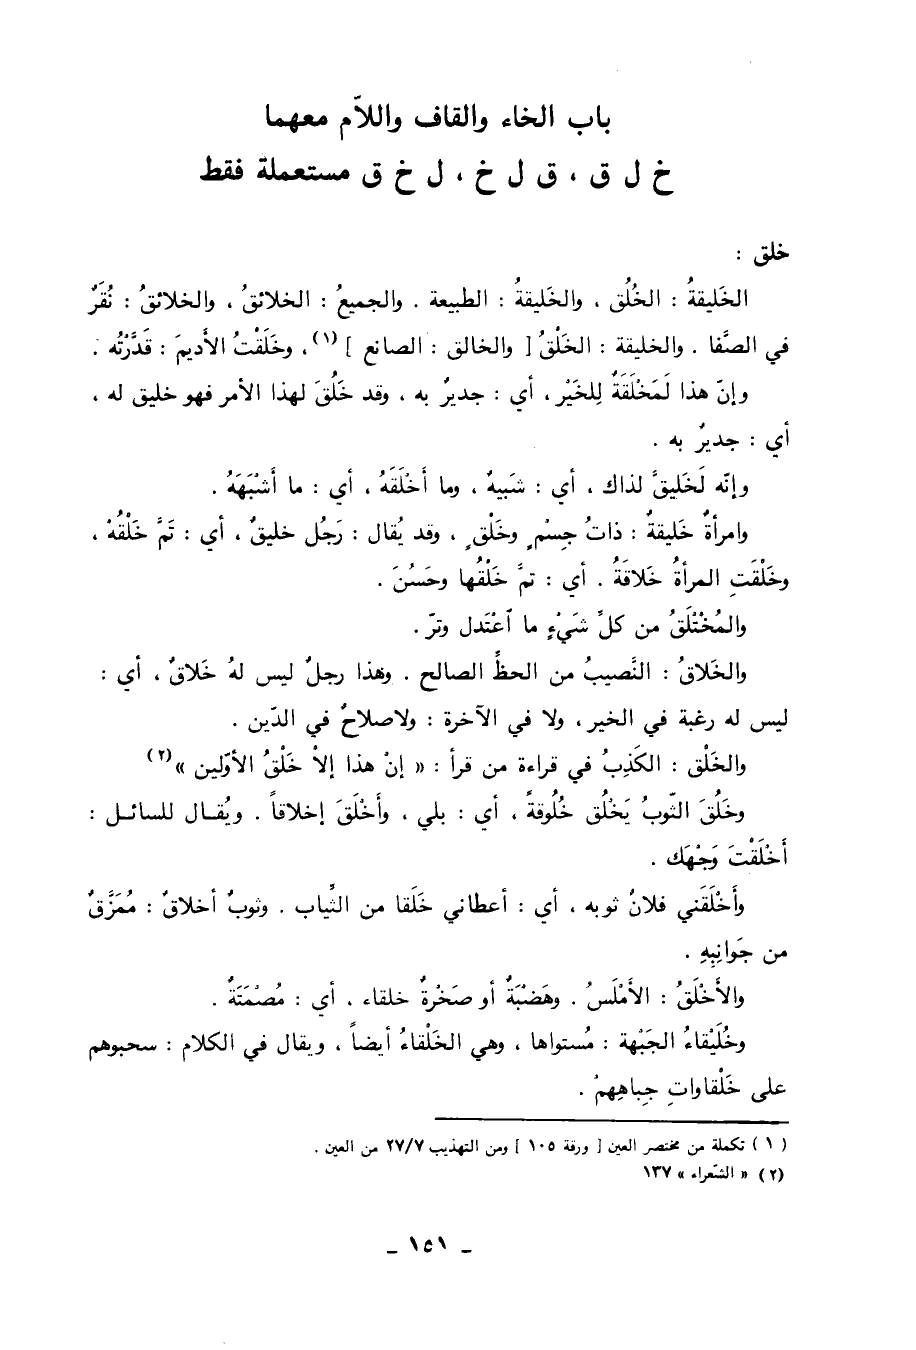 باب الخاء والقاف واللاّم معهما
خ ل ق ، ق ل خ ، ل خ ق مستعملة فقط
خلق :
الخَليقةُ : الخُلُق ، والخَليقةُ : الطبيعة . والجميعُ : الخلائقُ ، والخلائقُ : نُقَرٌ
في الصَّفا . والخليقة : الخَلْقُ [ والخالق : الصانع ] (١) ، وخَلَقْتُ الأديمَ : قَدَّرْتُه .
وإنّ هذا لَمَخْلَقَةٌ لِلخَيْر ، أي : جديرٌ به ، وقد خَلُقَ لهذا الأمر فهو خليق له ،
أي : جديرٌ به .
وإنّه لَخَليقٌ لذاك ، أي : شَبيهٌ ، وما أَخْلَقَهُ ، أي : ما أَشْبَهَهُ .
وامرأةٌ خَليقةٌ : ذاتُ جِسْمٍ وخَلْقٍ ، وقد يُقال : رَجُل خليقٌ ، أي : تَمَّ خَلْقُهْ ،
وخَلُقَتِ المرأةُ خَلاقَةً . أي : تمَّ خَلْقُها وحَسُنَ .
والمُخْتَلَقُ من كلِّ شَيْءٍ ما ٱعْتَدل وتمّ .
والخَلاقُ : النَّصيبُ من الحظِّ الصالح . وهذا رجلٌ ليس لهُ خَلاقٌ ، أي :
ليس له رغبة في الخير ، ولا في الآخرة : ولاصلاحٌ في الدّين .
والخَلْق : الكَذِبُ في قراءة من قرأ : « إنْ هذا إلاّ خَلْقُ الأوّلين »(٢)
وخَلُقَ الثّوبُ يَخْلُق خُلُوقةً ، أي : بلي ، وأَخْلَقَ إخلاقاً . ويُقـال للسائـل :
أَخْلَقْتَ وَجْهَك .
وأَخْلَقَني فلانٌ ثوبه ، أي : أعطاني خَلَقا من الثِّياب . وثوبٌ أخلاقٌ : مُمَزَّقٌ
من جَوانِبِهِ .
والأَخْلَقُ : الأَمْلَسُ . وهَضْبَةٌ أو صَخْرةٌ خلقاء ، أي : مُصْمَتَةٌ .
وخُلَيْقاءُ الجَبْهة : مُستواها ، وهي الخَلْقاءُ أيضاً ، ويقال في الكلام : سحبوهم
على خَلْقاواتِ جِباهِهِمْ .
( ١ ) تكملة من مختصر العين [ ورقة ١٠٥ ] ومن التهذيب ٢٧/٧ من العين .
(٢) « الشّعراء » ١٣٧
ـ ١٥١ ـ